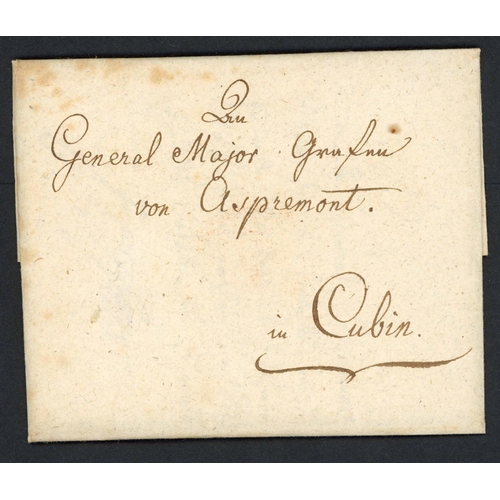 An
General Major Grafen
von Aspremont.
in Cubin.